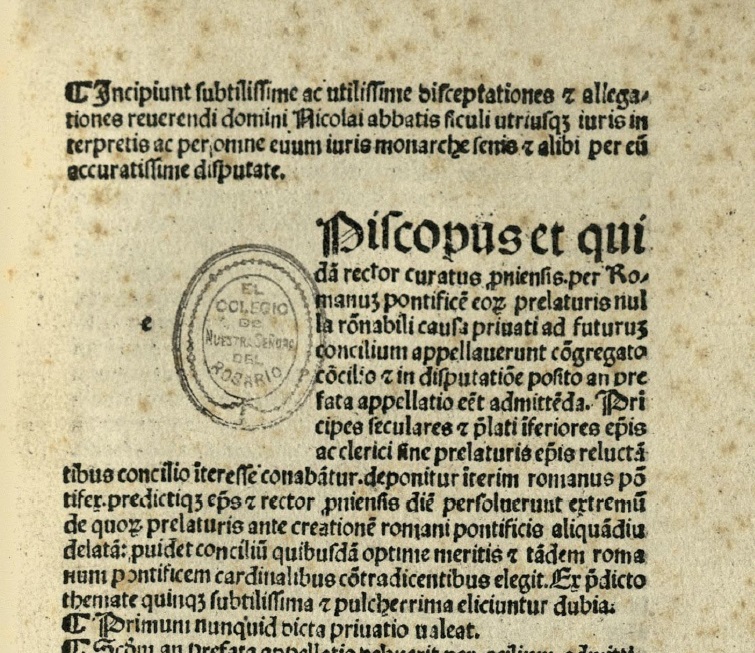 ¶ Incipiunt subtilissime ac utilissime disceptationes ⁊ allega⸗
tiones reuerendi domini Nicolai abbatis siculi utriusqꝫ iuris in
terpretis ac per omne euum iuris monarche senis ⁊ alibi per eū
accuratissime disputate.
Piscopus et qui
dā rector curatus ꝓniensis.per Ro⸗
manuꝫ pontificē eoꝝ prelaturis nul
la rōnabili causa priuati ad futuruꝫ
concilium appellauerunt cōgregato
cōcilio ⁊ in disputatiōe posito an pre
fata appellatio eēt admittēda. Pri
e
cipes seculares ⁊ p̄lati īferiores ep̄is
ac clerici sine prelaturis ep̄is reluctā
tibus concilio īteresse conabātur.deponitur īterim romanus pō
tifex.predictiqꝫ ep̄s ⁊ rector ꝓniensis diē persoluerunt extremū
de quoꝝ prelaturis ante creationē romani pontificis aliquādiu
delatā: puidet conciliū quibusdā optime meritis ⁊ tādem roma
num pontificem cardinalibus cōtradicentibus elegit.Ex p̄dicto
themate quinqꝫ subtilissima ⁊ pulcherrima eliciuntur dubia.
¶ Primum nunquid dicta priuatio ualeat.
¶ Scd̄m an prefata appellatio
EL
COLEGIO
DE
NUESTRA SEÑORA
DEL
ROSARIO